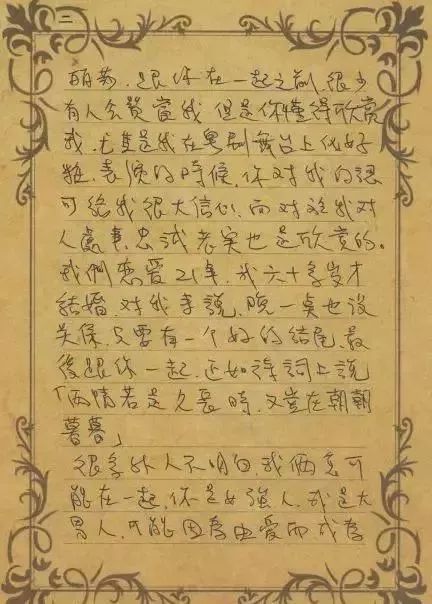 二
丽莎，跟你在一起之前，很少
有人会贊賞我，但是你懂得欣赏
我，尤其是我在粤剧舞台上做好
戏，表演的時候，你对我的認
可給我很大信心，而对於我对
人處事，忠诚老实也是欣赏的。
我們恋爱21年，我六十多岁才
結婚，对我来說，晚一点也没
关係，只要有一个好的结尾，最
後跟你一起，正如詩詞上說
「两情若是久長時，又豈在朝朝
暮暮」
很多外人不明白我倆怎可
能在一起，你是女強人，我是大
男人，可能因為由爱而成為